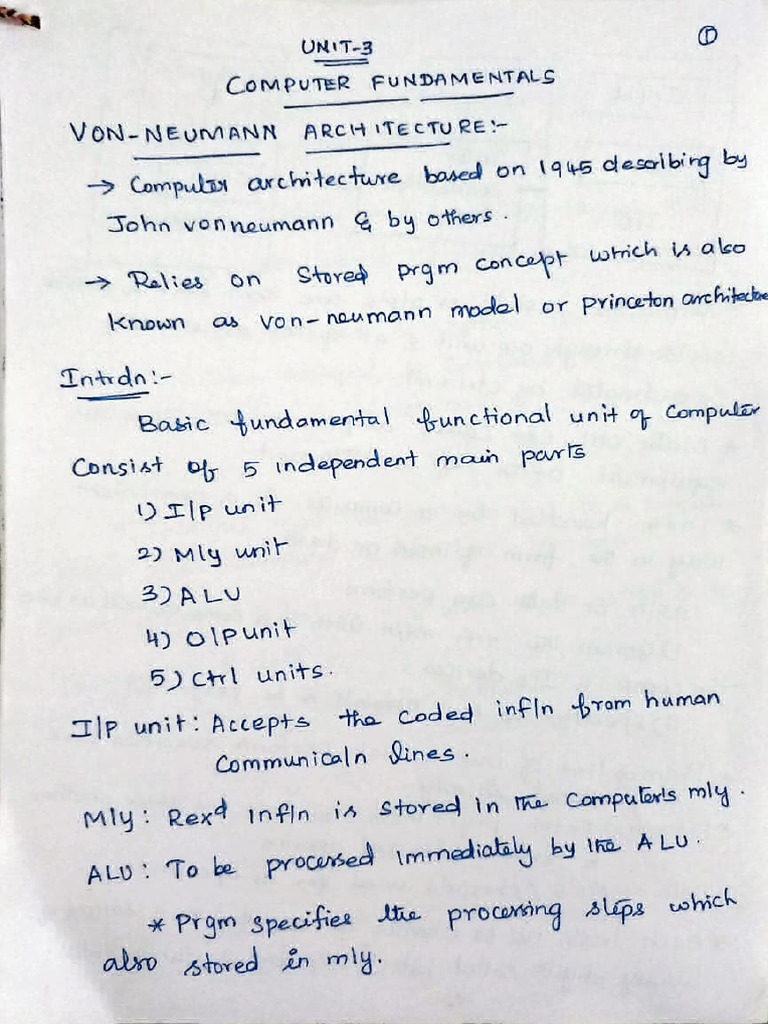 ①
UNIT-3
COMPUTER FUNDAMENTALS
VON-NEUMANN ARCHITECTURE:-
→ Computer architecture based on 1945 describing by
John vonneumann & by others.
→ Relies on Stored prgm concept which is also
known as von-neumann model or princeton architecture
Intrdn:-
Basic fundamental functional unit of Computer
Consist of 5 independent main parts
1) I/p unit
2) Mly unit
3) ALU
4) O/P unit
5) Ctrl units.
I/P unit: Accepts the coded infln from human
Communicaln lines.
Mly: Rexd infln is stored in the Computers mly.
ALU: To be processed immediately by the ALU.
* Prgm specifies the processing steps which
also stored in mly.